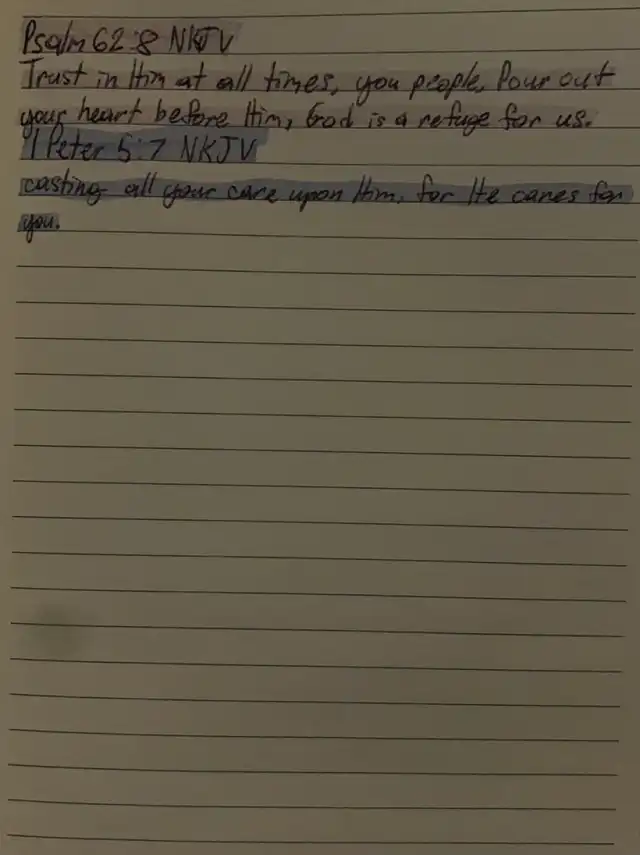 Psalm 62:8 NKJV
Trust in Him at all times, you people, Pour out
your heart before Him, God is a refuge for us.
1 Peter 5:7 NKJV
casting all your care upon Him, for He cares for
you.